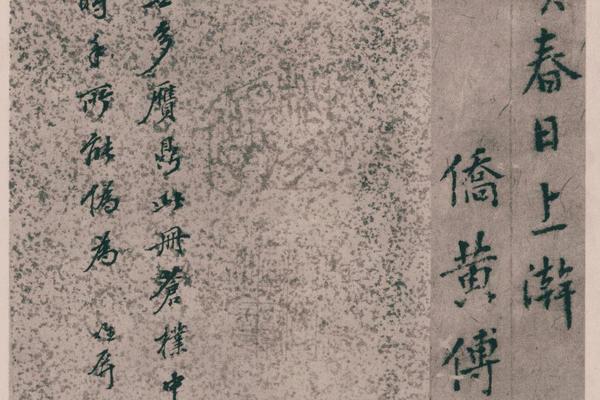 春日上澣
僑黃傅
多贋鼎此冊蒼樸中
時手所能偽為